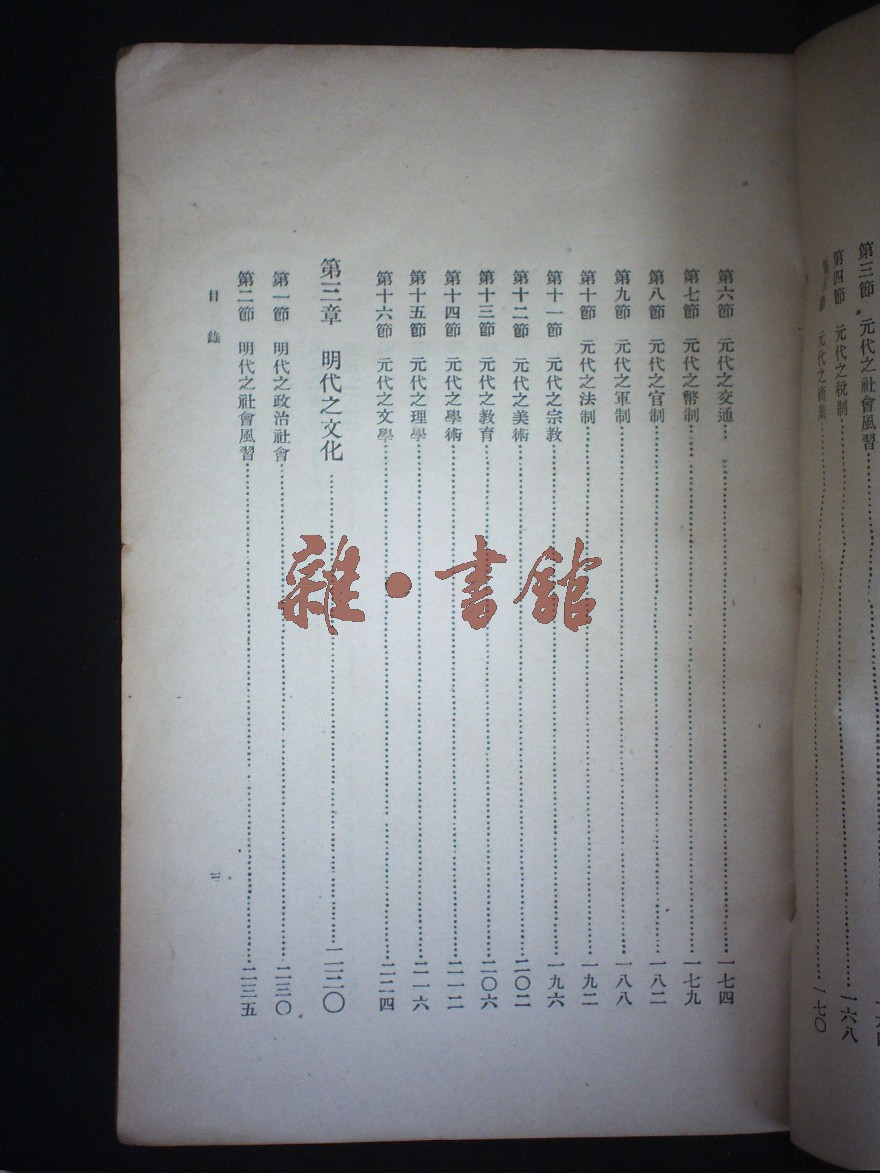 第三節　元代之社會風習
第四節　元代之稅制……一六八
元代之商業……一七〇
第六節　元代之交通……一七四
第七節　元代之幣制……一七九
第八節　元代之官制……一八二
第九節　元代之軍制……一八八
第十節　元代之法制……一九二
第十一節　元代之宗教……一九六
第十二節　元代之美術……二〇二
第十三節　元代之教育……二〇六
第十四節　元代之學術……二一二
第十五節　元代之理學……二一六
第十六節　元代之文學……二二四
第三章　明代之文化……二三〇
第一節　明代之政治社會……二三〇
第二節　明代之社會風習……二三五
目錄
三
雜・書館